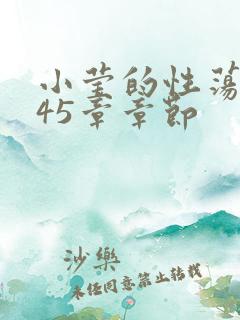 小莹的性荡
45章章节
沙樂
未经同意禁止转载